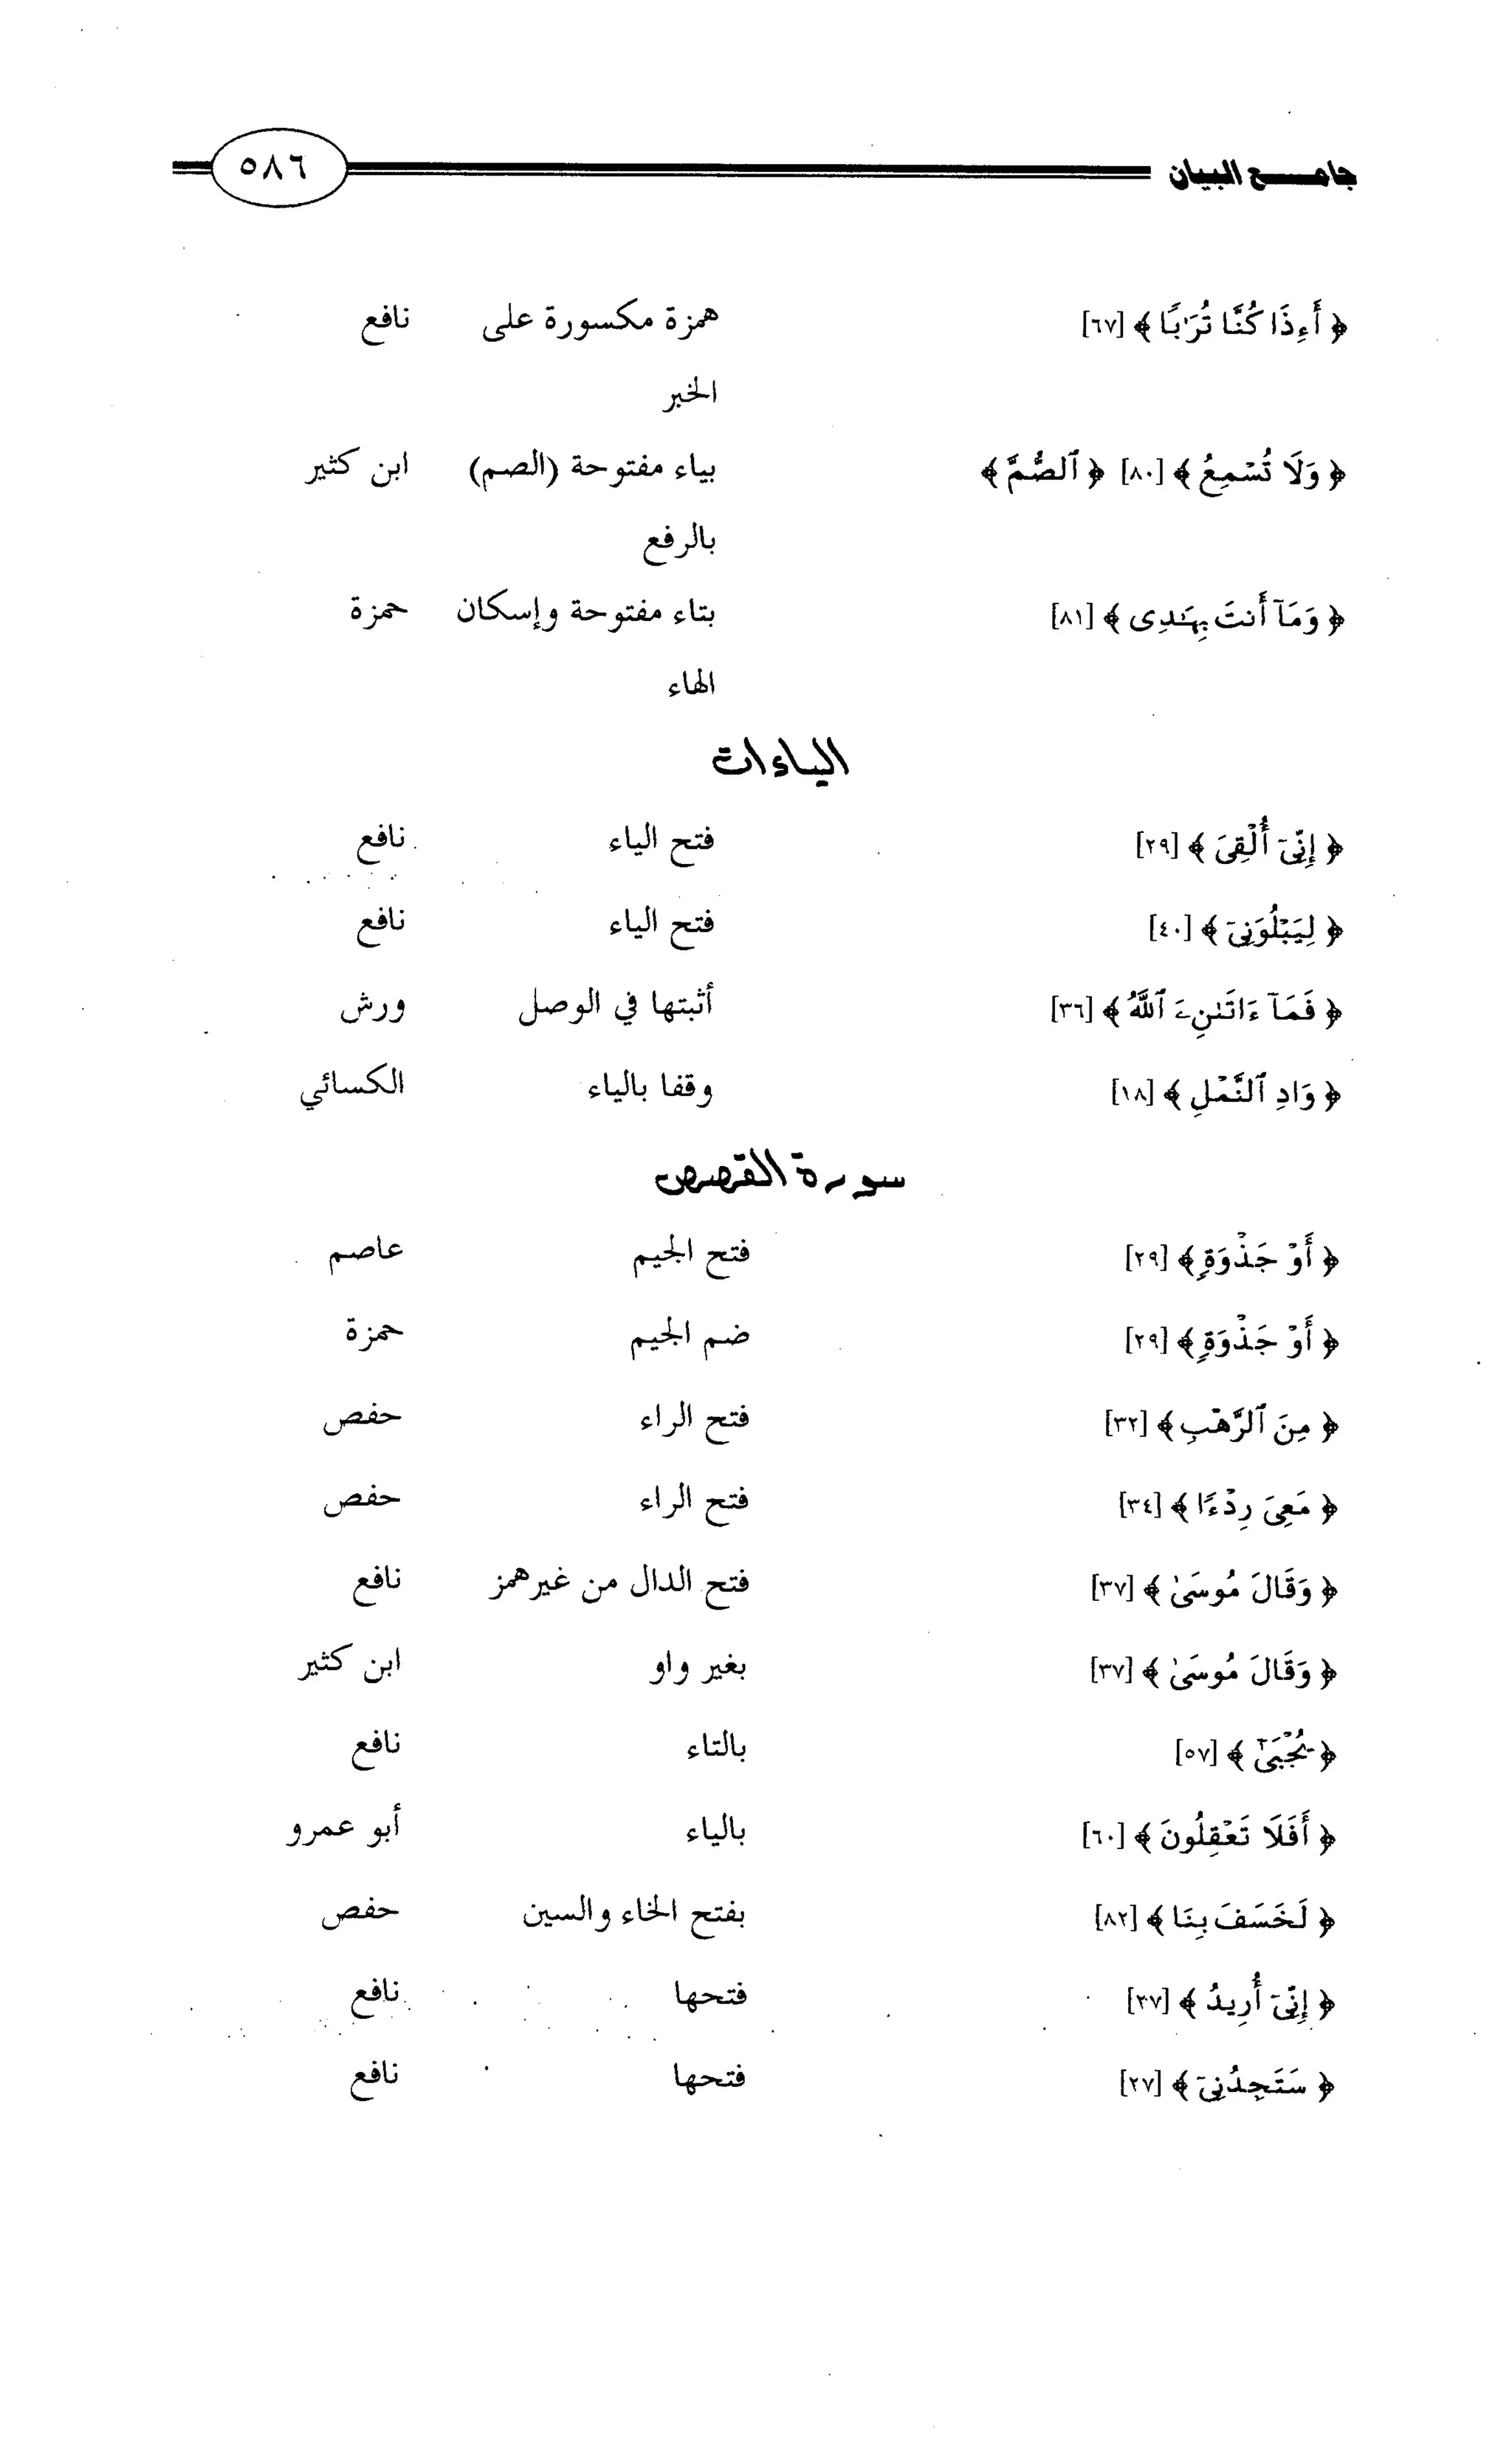 جامع البيان ٥٨٦
﴿ أَءِذَا كُنَّا تُرَٰبًا ﴾ [٦٧] همزة مكسورة على نافع
الخبر
﴿ وَلَا تُسْمِعُ ﴾ [٨٠] ﴿ ٱلصُّمَّ ﴾ بياء مفتوحة (الصم) ابن كثير
بالرفع
﴿ وَمَآ أَنتَ بِهَٰدِى ﴾ [٨١] بتاء مفتوحة وإسكان حمزة
الهاء
الياءات
﴿ إِنِّىٓ أُلْقِىَ ﴾ [٢٩] فتح الياء نافع
﴿ لِيَبْلُوَنِىٓ ﴾ [٤٠] فتح الياء نافع
﴿ فَمَآ ءَاتَىٰنِۦَ ٱللَّهُ ﴾ [٣٦] أثبتها في الوصل ورش
﴿ وَادِ ٱلنَّمْلِ ﴾ [١٨] وقفا بالياء الكسائي
سورة القصص
﴿ أَوْ جَذْوَةٍ ﴾ [٢٩] فتح الجيم عاصم
﴿ أَوْ جَذْوَةٍ ﴾ [٢٩] ضم الجيم حمزة
﴿ مِنَ ٱلرَّهْبِ ﴾ [٣٢] فتح الراء حفص
﴿ مَعِىَ رِدْءًا ﴾ [٣٤] فتح الراء حفص
﴿ وَقَالَ مُوسَىٰ ﴾ [٣٧] فتح الدال من غير همز نافع
﴿ وَقَالَ مُوسَىٰ ﴾ [٣٧] بغير واو ابن كثير
﴿ يُجْبَىٰٓ ﴾ [٥٧] بالتاء نافع
﴿ أَفَلَا تَعْقِلُونَ ﴾ [٦٠] بالياء أبو عمرو
﴿ لَخَسَفَ بِنَا ﴾ [٨٢] بفتح الخاء والسين حفص
﴿ إِنِّىٓ أُرِيدُ ﴾ [٢٧] فتحها نافع
﴿ سَتَجِدُنِىٓ ﴾ [٢٧] فتحها نافع